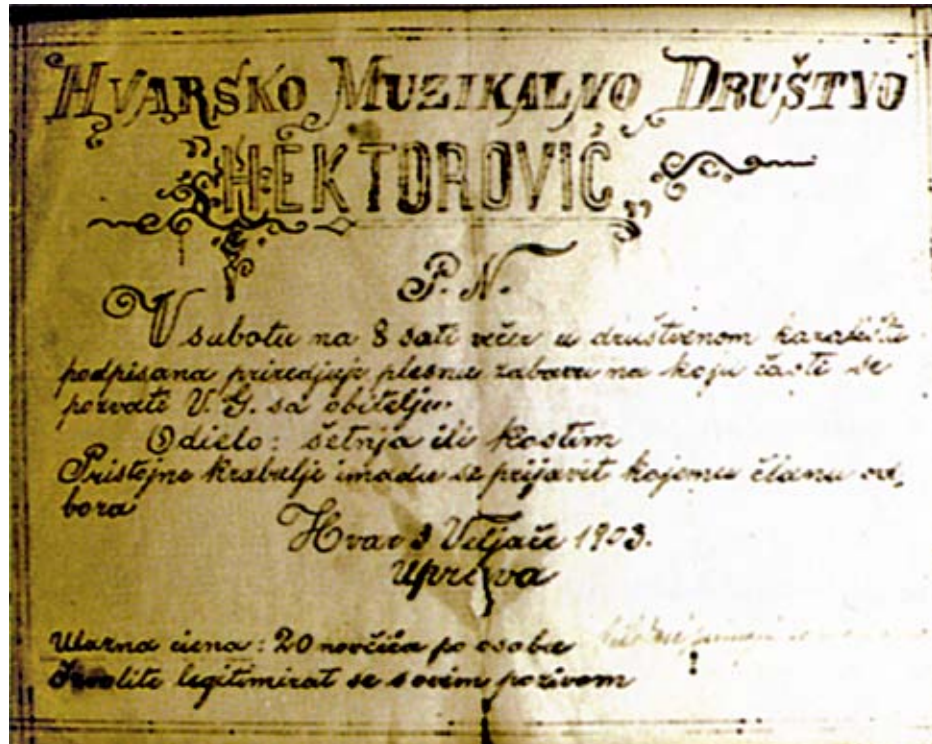 HVARSKO MUZIKALNO DRUŠTVO
"HEKTOROVIĆ"
P. N.
U subotu na 8 sati večer u društvenom kazalištu
podpisana priredjuje plesnu zabavu na koju časti se
pozvati V. G. sa obitelju.
Odielo: šetnja ili kostim
Pristojne krabulje imadu se prijavit kojemu članu od-
bora
Hvar 3 Veljače 1903.
Uprava
Ulazna ciena: 20 novčića po osobi
Izvolite legitimirat se s ovim pozivom